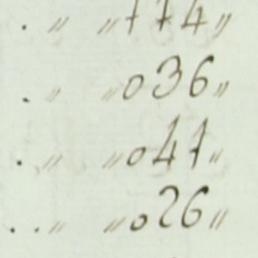 . „ „774„
. „ „036„
. „ „041„
. . „ „026„